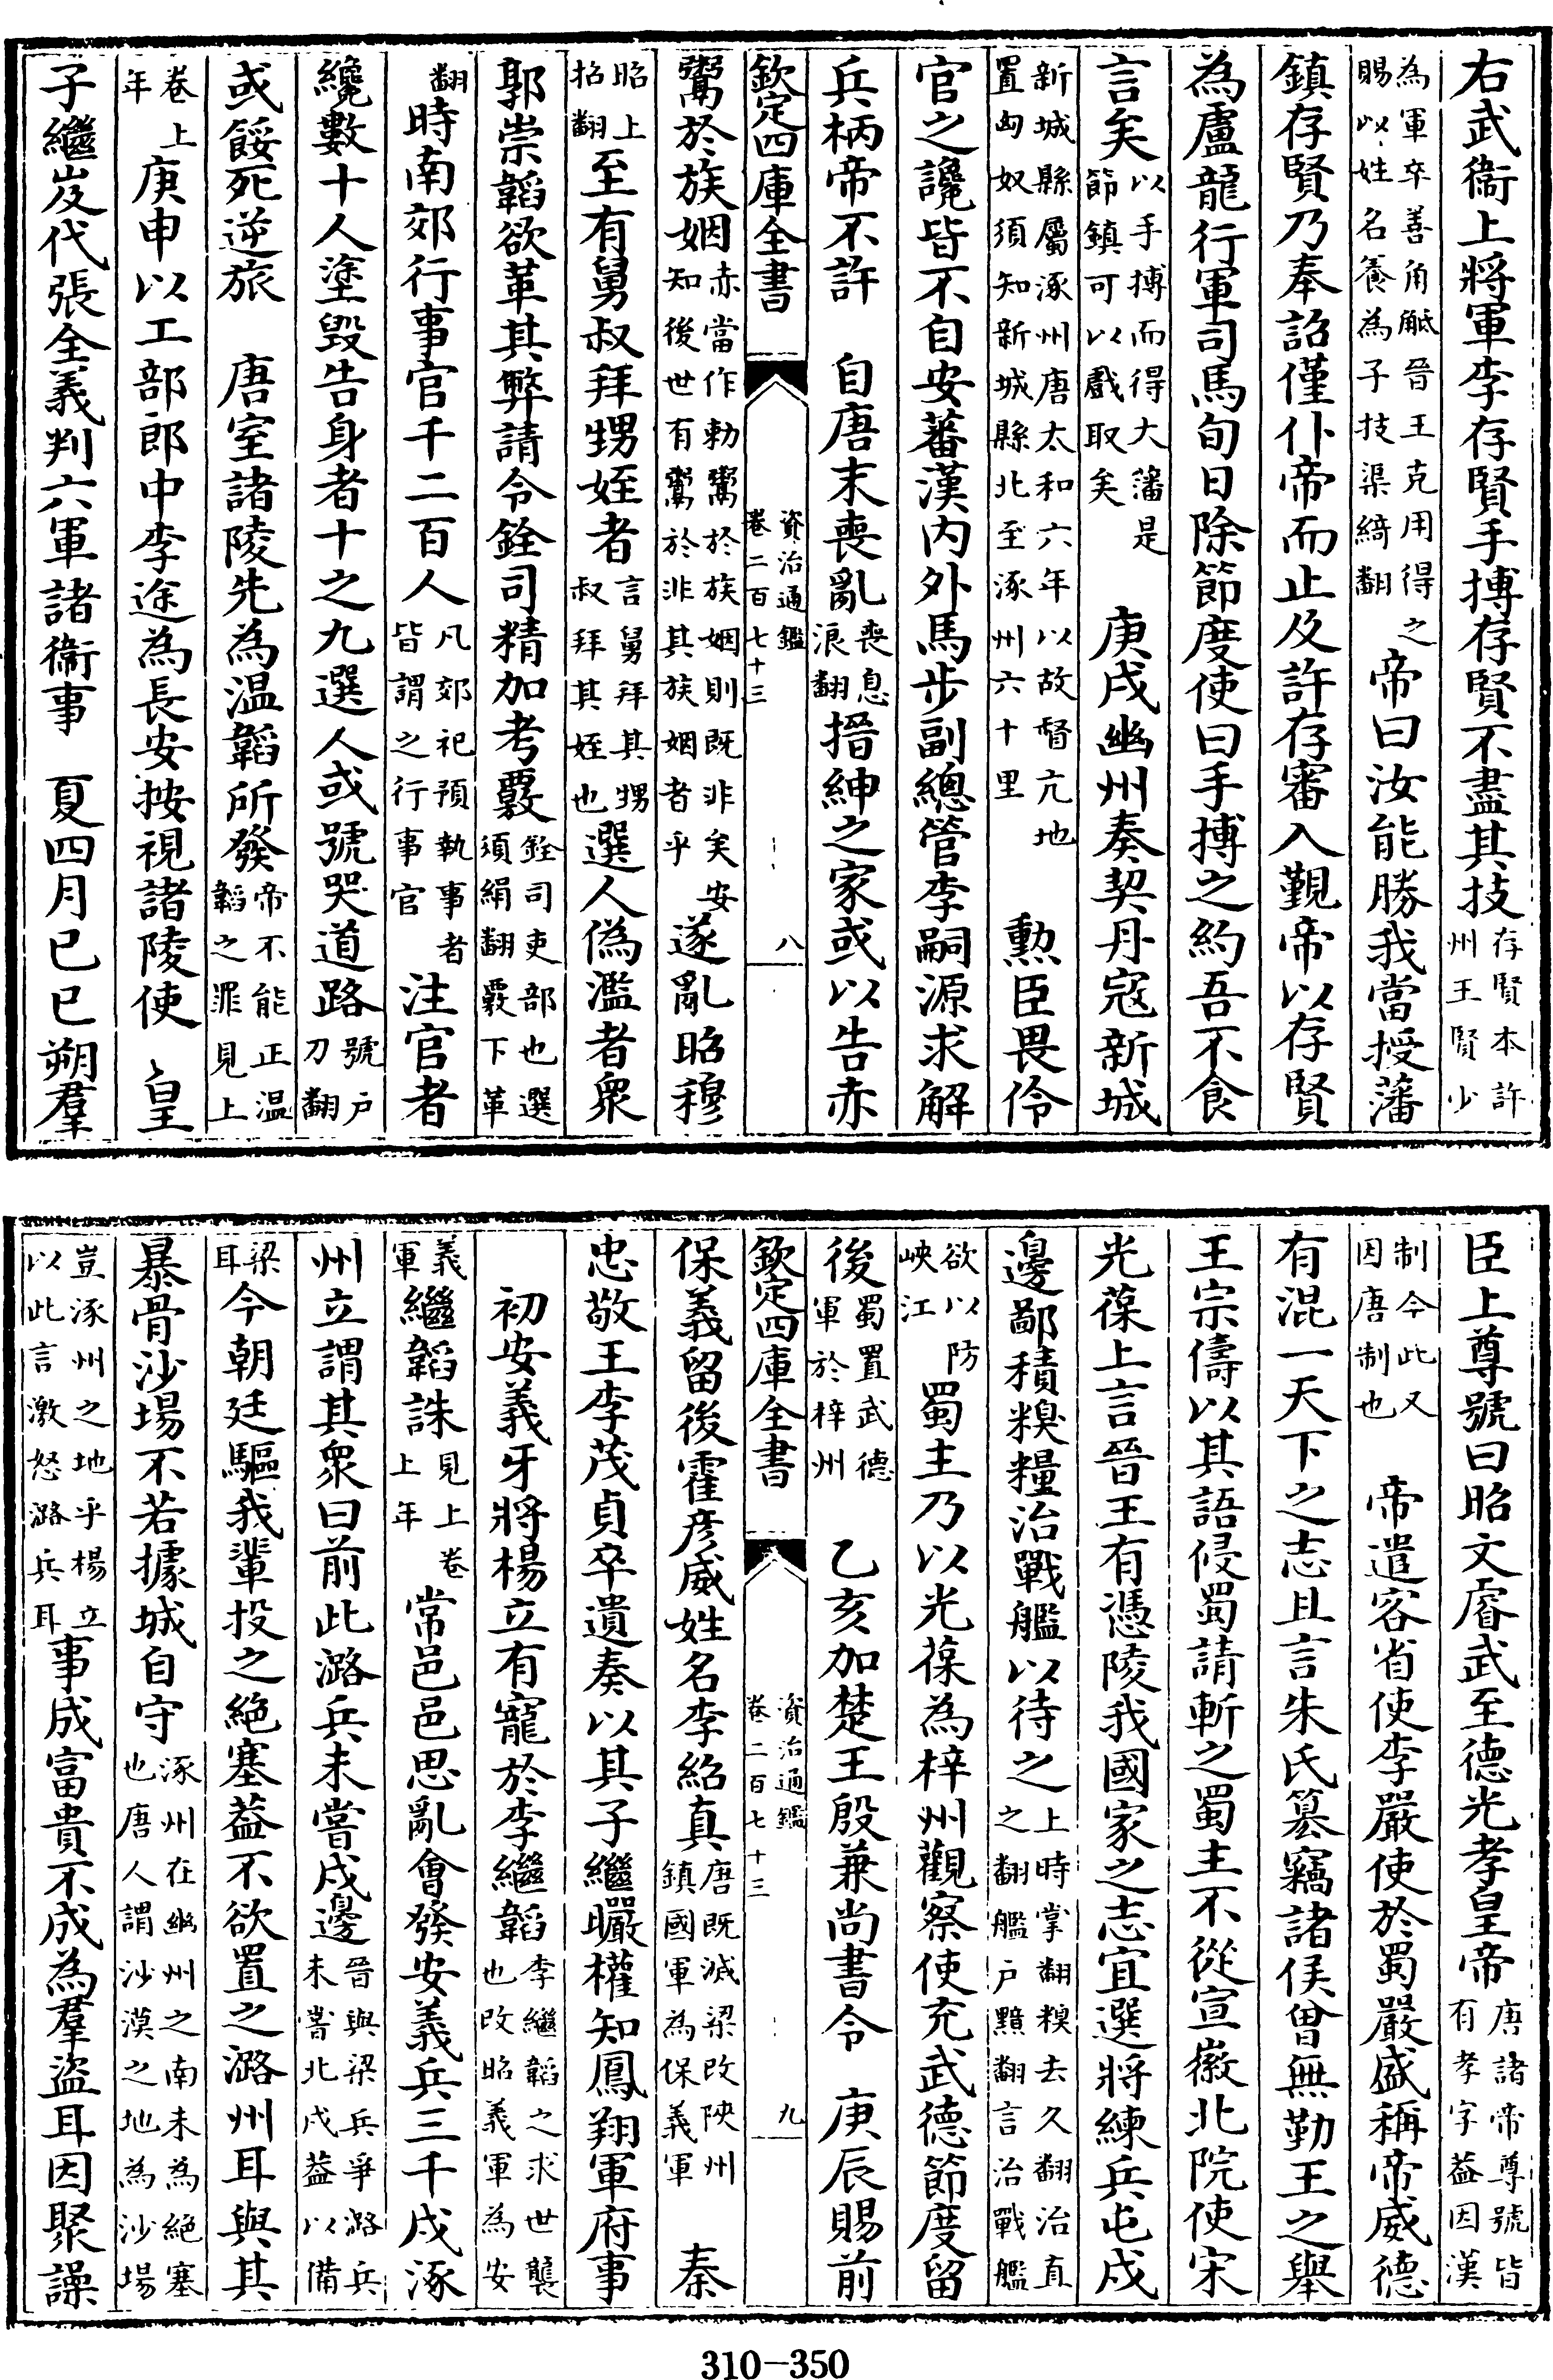 右武衞上將軍李存賢手搏存賢不盡其技存賢本許州王賢少
為軍卒善角觝晉王克用得之賜以姓名養為子技渠綺翻帝曰汝能勝我當授藩
鎮存賢乃奉詔僅仆帝而止及許存審入覲帝以存賢
為盧龍行軍司馬旬日除節度使曰手搏之約吾不食
言矣以手搏而得大藩是節鎮可以戲取矣 庚戌幽州奏契丹冦新城
新城縣屬涿州唐太和六年以故督亢地置匈奴須知新城縣北至涿州六十里 勲臣畏伶
官之讒皆不自安蕃漢内外馬步副總管李嗣源求解
兵柄帝不許 自唐末喪亂喪息浪翻搢紳之家或以告赤
欽定四庫全書 資治通鑑卷二百七十三 八
鬻於族姻赤當作勅鬻於族姻則既非矣安知後世有鬻於非其族姻者乎遂亂昭穆
昭上招翻至有舅叔拜甥姪者言舅拜其甥叔拜其姪也選人偽濫者衆
郭崇韜欲革其弊請令銓司精加考覈銓司吏部也選須絹翻覈下革
翻時南郊行事官千二百人凡郊祀預執事者皆謂之行事官注官者
纔數十人塗毁告身者十之九選人或號哭道路號户刀翻
或餒死逆旅 唐室諸陵先為温韜所發帝不能正温韜之罪見上
卷上年庚申以工部郎中李途為長安按視諸陵使 皇
子繼岌代張全義判六軍諸衞事 夏四月己巳朔羣
臣上尊號曰昭文睿武至德光孝皇帝唐諸帝尊號皆有孝字葢因漢
制今此又因唐制也 帝遣客省使李嚴使於蜀嚴盛稱帝威德
有混一天下之志且言朱氏簒竊諸侯曾無勤王之舉
王宗儔以其語侵蜀請斬之蜀主不從宣徽北院使宋
光葆上言晉王有憑陵我國家之志宜選將練兵屯戍
邊鄙積糗糧治戰艦以待之上時掌翻糗去久翻治直之翻艦户黯翻言治戰艦
欲以防峽江蜀主乃以光葆為梓州觀察使充武德節度留
後蜀置武德軍於梓州 乙亥加楚王殷兼尚書令 庚辰賜前
欽定四庫全書 資治通鑑卷二百七十三 九
保義留後霍彦威姓名李紹真唐既滅梁改陜州鎮國軍為保義軍 秦
忠敬王李茂貞卒遺奏以其子繼曮權知鳳翔軍府事
初安義牙將楊立有寵於李繼韜李繼韜之求世襲也改昭義軍為安
義軍繼韜誅見上卷上年常邑邑思亂會發安義兵三千戍涿
州立謂其衆曰前此潞兵未嘗戍邊晉與梁兵爭潞兵未嘗北戍葢以備
梁耳今朝廷驅我輩投之絶塞葢不欲置之潞州耳與其
暴骨沙場不若據城自守涿州在幽州之南未為絶塞也唐人謂沙漠之地為沙場
豈涿州之地乎楊立以此言激怒潞兵耳事成富貴不成為羣盜耳因聚譟
310-350